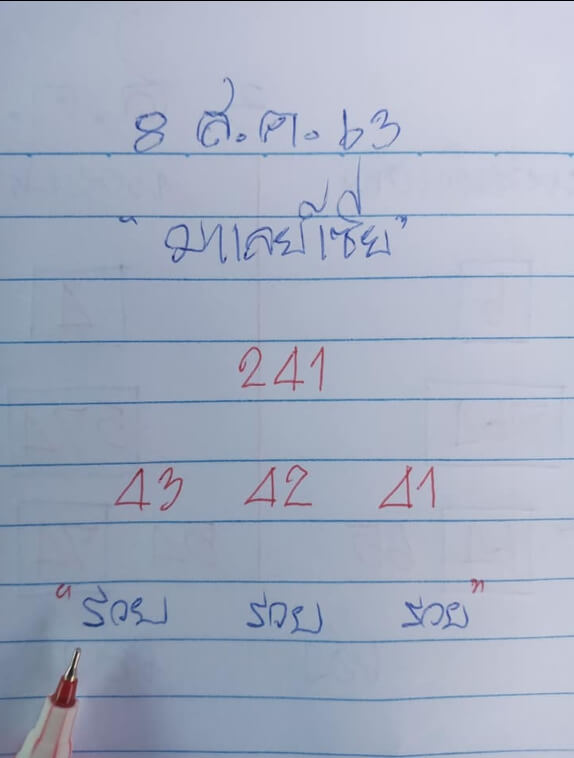 8 ส.ค. 63
"มาเลย์เซีย"
241
43 42 41
"รวย รวย รวย"